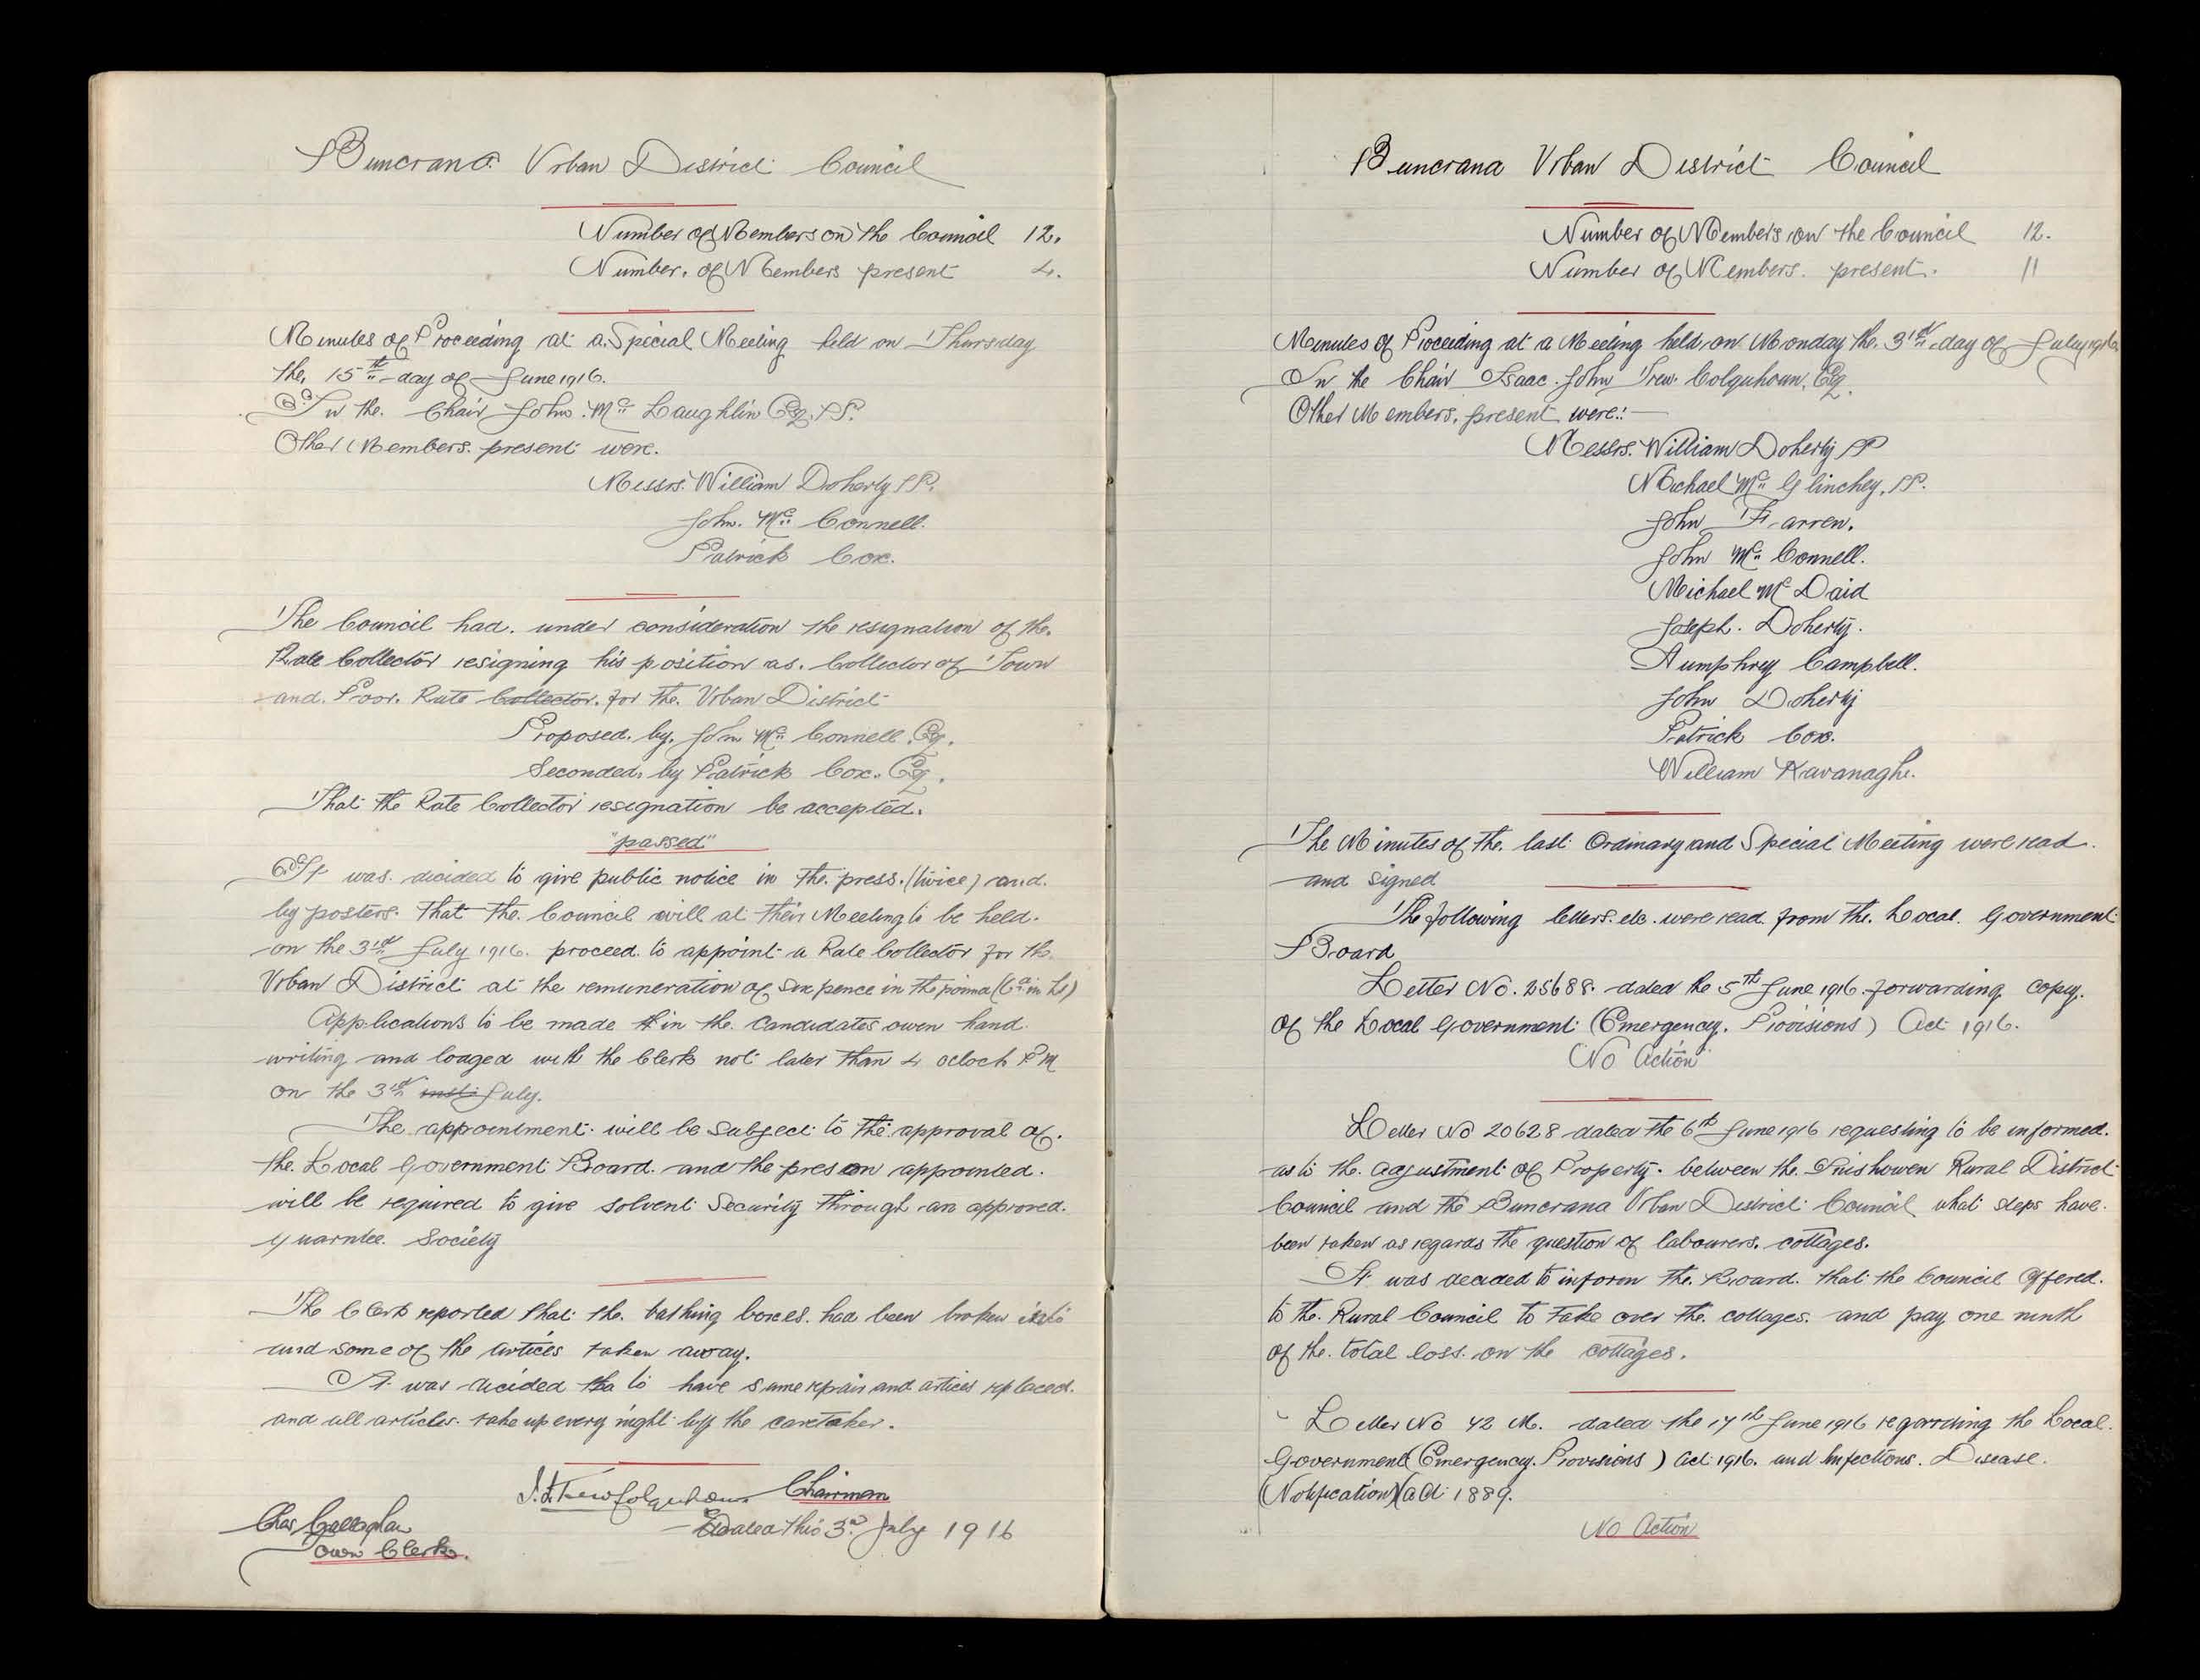 Buncrana Urban District Council
Number of Members on the Council 12.
Number. of Members present 4.
Minutes of Proceeding at a Special Meeting held on Thursday
the, 15th day of June 1916.
In the. Chair John Mc Laughlin Esq. J.P.
Other Members. present were.
Messrs. William Doherty J.P.
John. Mc Connell.
Patrick Cox.
The Council had. under consideration the resignation of the.
Rate Collector resigning his position as. Collector of Town
and. Poor. Rate Collector. for the. Urban District
Proposed. by. John Mc Connell. Esq.
Seconded, by Patrick Cox. Esq.
That the Rate Collector resignation be accepted.
"passed"
It was decided to give public notice in the press. (twice) and.
by posters. that the. Council will at their Meeting to be held.
on the 3rd July 1916. proceed to appoint a Rate Collector for the.
Urban District at the remuneration of Six pence in the (6d in £)
Applications to be made in the. Candidates owen hand
writing and loaged with the Clerk not later than 4 ocloch P M
on the 3rd inst. July.
The appointment. will be subject to the approval of.
the. Local Government Board. and the preson appointed.
will be required to give solvent Security through an approved.
guarntee. Society
The Clerk reported that the. bathing boxes. had been broken into
and some of the artices taken away.
It was decided to have same repair and artices replaced.
and all articles. take up every night by the caretaker.
I. J. Trew Colquhoun Chairman
Dated this 3rd July 1916
Chas Gallagher
Town Clerk.
Buncrana Urban District Council
Number of Members on the Council 12.
Number of Members. present. 11
Minutes of Proceeding at a Meeting held, on Monday the. 3rd day of July 1916.
In the Chair Isaac. John Trew. Colquhoun, Esq.
Other Members, present were:—
Messrs. William Doherty JP
Michael Mc Glinchey, JP.
John Farren.
John Mc Connell.
Michael Mc Daid
Joseph. Doherty.
Humphrey Campbell.
John Doherty
Patrick Cox.
William Kavanagh.
The Minutes of the. last Ordinary and Special Meeting were read.
and signed
The following letters. etc. were read from the. Local. Government
Board
Letter No. 25688. dated the 5th June 1916. forwarding copy.
of the Local Government (Emergency. Provisions) Act 1916.
No Action
Letter No 20628 dated the 6th June 1916 requesting to be informed.
as to the. adjustment of Property. between the. Inishowen Rural District
Council and the Buncrana Urban District Council what steps have.
been taken as regards the question of labourers. cottages.
It was decided to inform the. Board. that the Council offered.
to the. Rural Council to take over the. cottages. and pay one ninth
of the. total loss. on the cottages.
Letter No 42 M. dated the 17th June 1916 regarding the Local.
Government (Emergency. Provisions) Act 1916. and Infectious. Disease.
(Notification) (Act 1889.
No Action